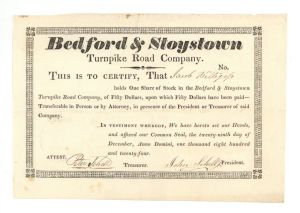 Bedford & Stoystown
Turnpike Road Company.
No.
THIS IS TO CERTIFY, THAT Jacob
holds One Share of Stock in the Bedford & Stoystown
Turnpike Road Company, of Fifty Dollars, upon which Fifty Dollars have been paid—
Transferable in Person or by Attorney, in presence of the President or Treasurer of said
Company.
IN TESTIMONY WHEREOF, We have hereto set our Hands,
and affixed our Common Seal, the twenty-ninth day of
December, Anno Domini, one thousand eight hundred
and twenty-four.
ATTEST, Peter Schell
Treasurer. President.